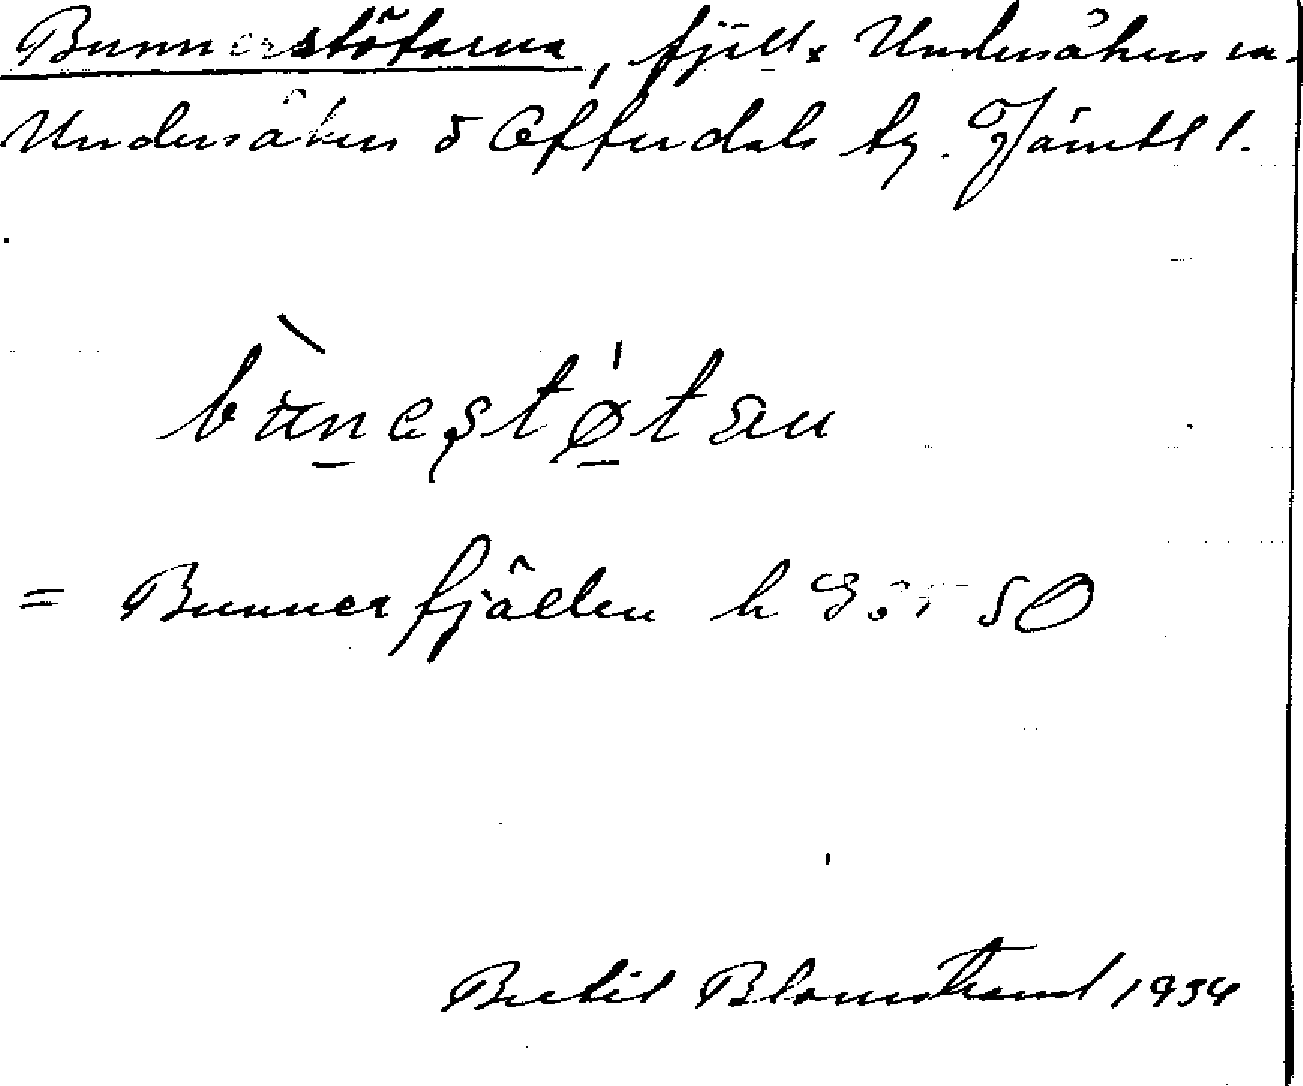 Bunnerstötarna, fjäll, Undersåkers sn.
Undersåkers o Offerdals tg. Jämtl l.
bùnes̩tø̍tạu
= Bunnerfjällen h 50
Bertil Blomstrand 1934